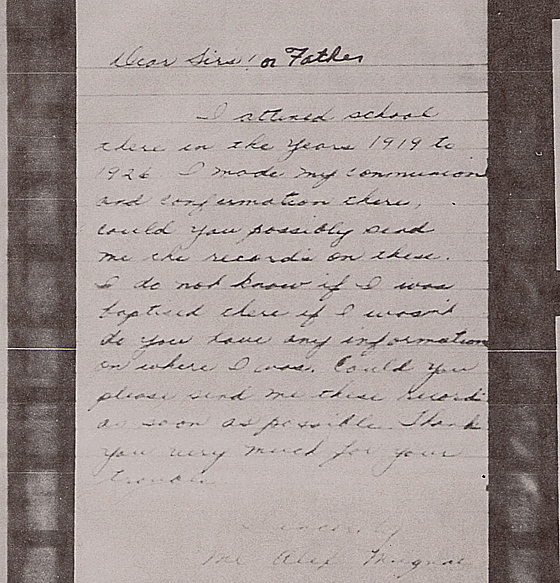 Dear Sirs! or Father
I attened school
there in the years 1919 to
1926 I made my communion
and confirmation there,
could you possibly send
me the records on these.
I do not know if I was
baptised there if I wasn't
do you have any information
on where I was. Could you
please send me these record
as soon as possible Thank
you very much for your
trouble
Sincerly
Mr Alex